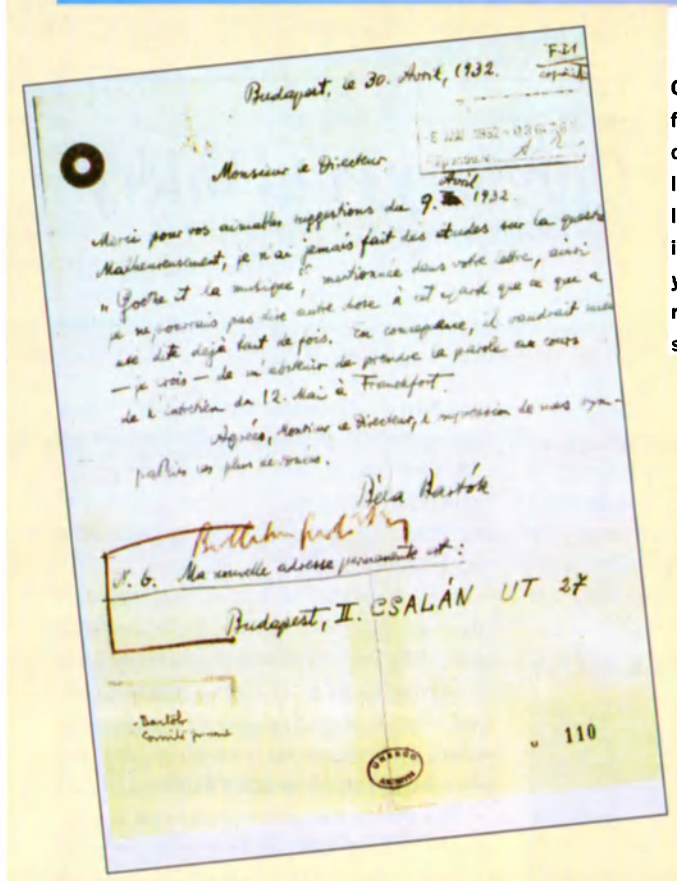 F-21
Budapest, le 30. Avril, 1932.
Monsieur le Directeur
Avril
Merci pour vos aimables suggestions du 9. 1932.
Malheureusement, je n'ai jamais fait des études sur la question
"Goethe et la musique", mentionnée dans votre lettre, ainsi
je ne pourrais pas dire autre chose à cet égard que ce qui a
été dite déjà tant de fois. En conséquence, il vaudrait mieux
— je crois — de m'abstenir de prendre la parole au cours
de l'entretien du 12. Mai à Francfort.
Agréez, Monsieur le Directeur, l'expression de mes sym-
pathies les plus dévouées.
Béla Bartók
N. B. Ma nouvelle adresse permanente est :
Budapest, II. CSALÁN UT 27
Bartók
Comité
110
UNESCO
ARCHIVES